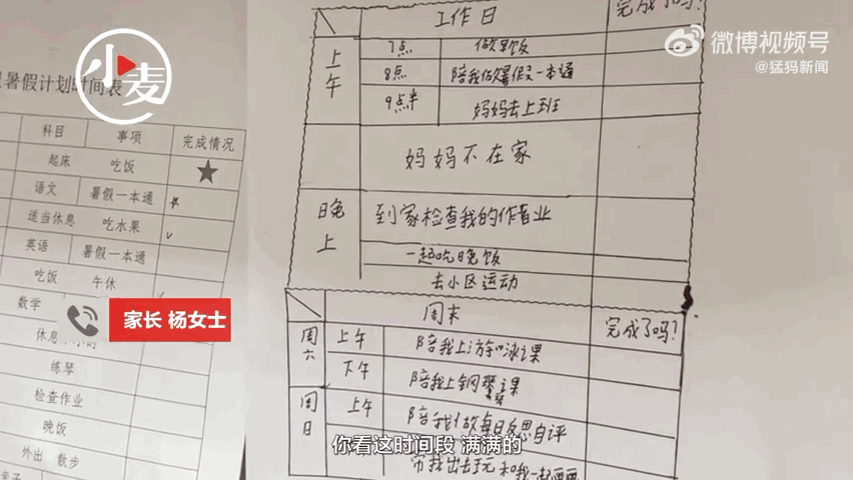 小麦
微博视频号
@猛犸新闻
暑假计划时间表
科目 事项 完成情况
起床 吃饭 ★
语文 暑假一本通
适当休息 吃水果
英语 暑假一本通
吃饭 午休
数学
休息
练琴
检查作业
晚饭
外出 散步
亲子
工作日 完成了吗?
上午 7点 做早饭
8点 陪我做暑假一本通
9点半 妈妈去上班
妈妈不在家
晚上 到家检查我的作业
一起吃晚饭
去小区运动
周末 完成了吗?
周六 上午 陪我上游泳课
下午 陪我上钢琴课
周日 上午 陪我做每日反思自评
带我出去玩和我一起画画
家长 杨女士
你看这时间段 满满的